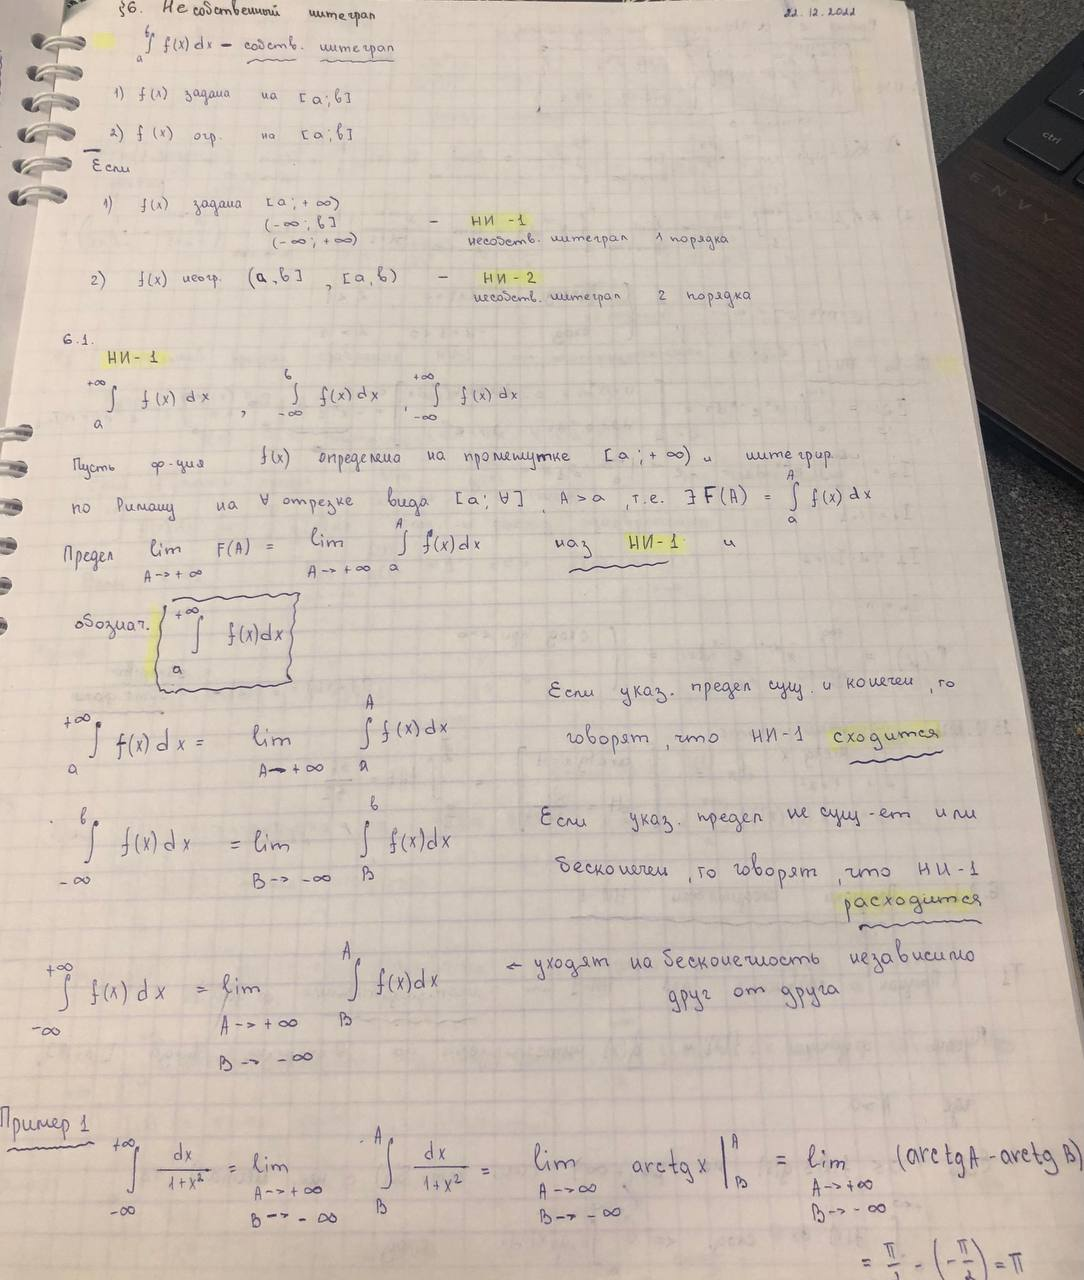 §6. Несобственный интеграл 22.12.2022
∫_a^b f(x) dx – собств. интеграл
1) f(x) задана на [a; b]
2) f(x) огр. на [a; b]
Если
1) f(x) задана [a; +∞)
(-∞; b] – НИ-1
(-∞; +∞) несобств. интеграл 1 порядка
2) f(x) неогр. (a, b], [a, b) – НИ-2
несобств. интеграл 2 порядка
6.1.
НИ-1
∫_a^{+∞} f(x) dx, ∫_{-∞}^b f(x) dx, ∫_{-∞}^{+∞} f(x) dx
Пусть ф-ция f(x) определена на промежутке [a; +∞) и интегрир.
по Риману на ∀ отрезке вида [a; ∀], A > a, т.е. ∃ F(A) = ∫_a^A f(x) dx
Предел lim_{A→+∞} F(A) = lim_{A→+∞} ∫_a^A f(x) dx наз НИ-1 и
обознач. ∫_a^{+∞} f(x) dx
Если указ. предел сущ. и конечен, то
∫_a^{+∞} f(x) dx = lim_{A→+∞} ∫_a^A f(x) dx
говорят, что НИ-1 сходится
∫_{-∞}^b f(x) dx = lim_{B→-∞} ∫_B^b f(x) dx
Если указ. предел не сущ-ет или
бесконечен, то говорят, что НИ-1
расходится
∫_{-∞}^{+∞} f(x) dx = lim_{A→+∞ B→-∞} ∫_B^A f(x) dx ← уходят на бесконечность независимо
друг от друга
Пример 1
∫_{-∞}^{+∞} dx/(1+x²) = lim_{A→+∞ B→-∞} ∫_B^A dx/(1+x²) = lim_{A→∞ B→-∞} arctg x |_B^A = lim_{A→+∞ B→-∞} (arctg A - arctg B)
= π/2 - (-π/2) = π